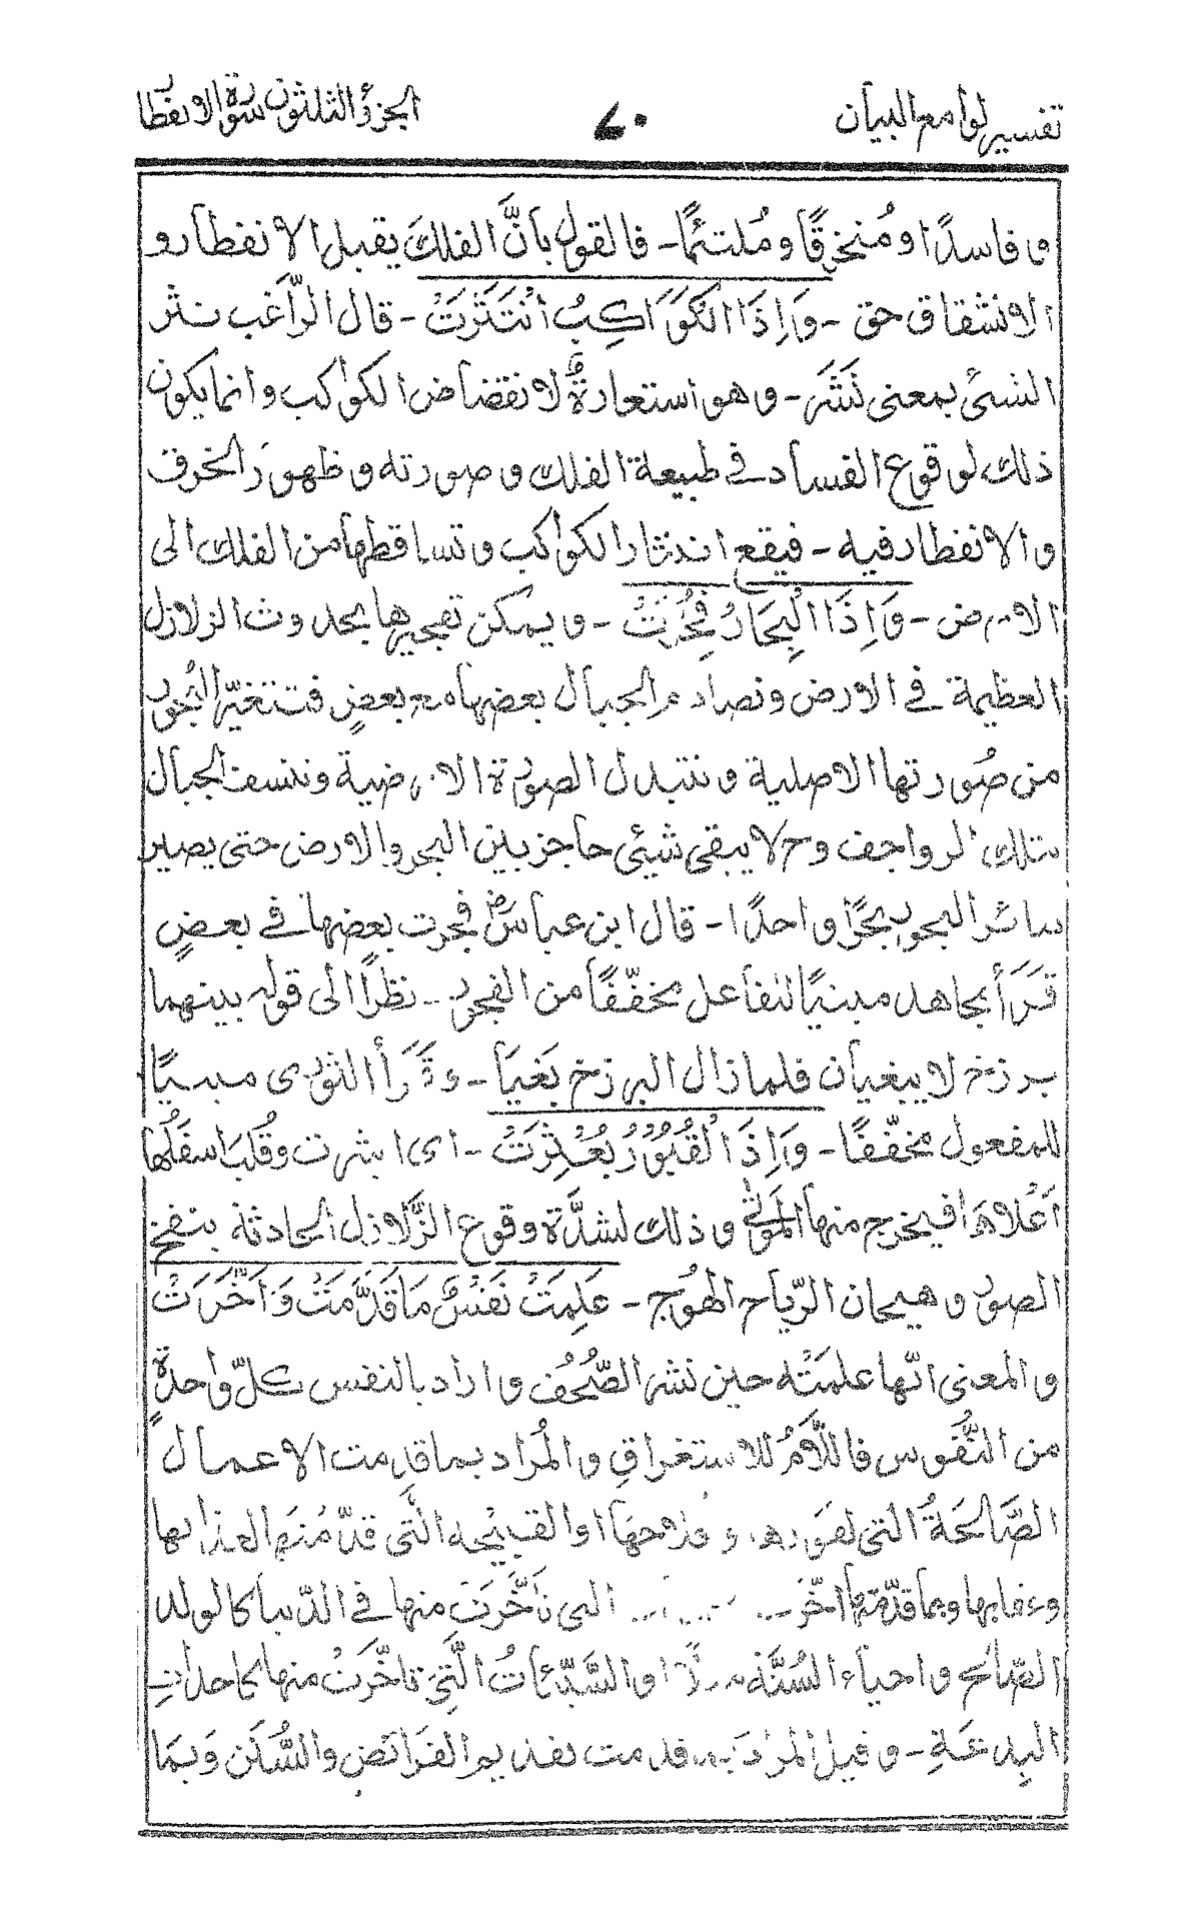 تفسير لوامع البيان
٧٠
الجزء الثلثون سورة الانفطار
و فاسدًا و مُنخرقًا و مُلتئمًا - فالقول بانَّ الفلكَ يقبل الانفطار و
الانشقاق حق - وَاِذَا الْكَوَاكِبُ انْتَثَرَتْ - قال الرَّاغب نثر
الشئ بمعنى نَشَرَ - و هو استعارةٌ لانقضاض الكواكب و انما يكون
ذلك لوقوع الفساد فى طبيعة الفلك و صورته و ظهور الخرق
و الانفطار فيه - فيقع اندثار الكواكب و تساقطها من الفلك الى
الارض - وَاِذَا الْبِحَارُ فُجِّرَتْ - و يمكن تفجيرها بحدوث الزلازل
العظيمة فى الارض و تصادم الجبال بعضها مع بعضٍ فتتغيّر البُحور
من صُورتها الاصلية و تتبدل الصورة الارضية و تنسف الجبال
بتلك الرواجف و ح لا يبقى شيئ حاجز بين البحر و الارض حتى يصير
سائر البحور بحرًا واحدًا - قال ابن عباس رض فجرت بعضها فى بعضٍ
قَرَأ مجاهد مبنيًا للفاعل مخففًا من الفجور - نظرًا الى قوله بينهما
برزخ لا يبغيان فلما زال البرزخ بَغَيَا - و قَرَأ الثورى مبنيًا
للمفعول مخفّفًا - وَاِذَا الْقُبُوْرُ بُعْثِرَتْ - اى ابثرت و قُلبَ اسفَلُها
اَعْلاهَا فيخرج منها المَوتٰى و ذلك لشدَّة وقوع الزَّلازل الحادثة بنفخ
الصور و هيجان الرّياح الهُوج - عَلِمَتْ نَفْسٌ مَا قَدَّمَتْ وَ اَخَّرَتْ
و المعنى انّها علمَتْه حين نشر الصُّحُف و اراد بالنفس كلّ واحدةٍ
من النُّفوس فاللَّامُ للاستغراق و المُراد بما قدمت الاعمال
الصَّالحَةُ التى او القبيحه الَّتى قدّمَتها لعذابها
و عقابها و بما قدّمته اخّر التى تَأخَّرَت منها فى الدّنيا كالولد
الصّالح و احياء السُنَّة و السَّيّئاتُ الَّتِى تاخَّرَتْ منها كاحداث
البِدعَةِ - و قيل المراد قدمت تقديم الفَرائض والسُّنَن وَ بمَا